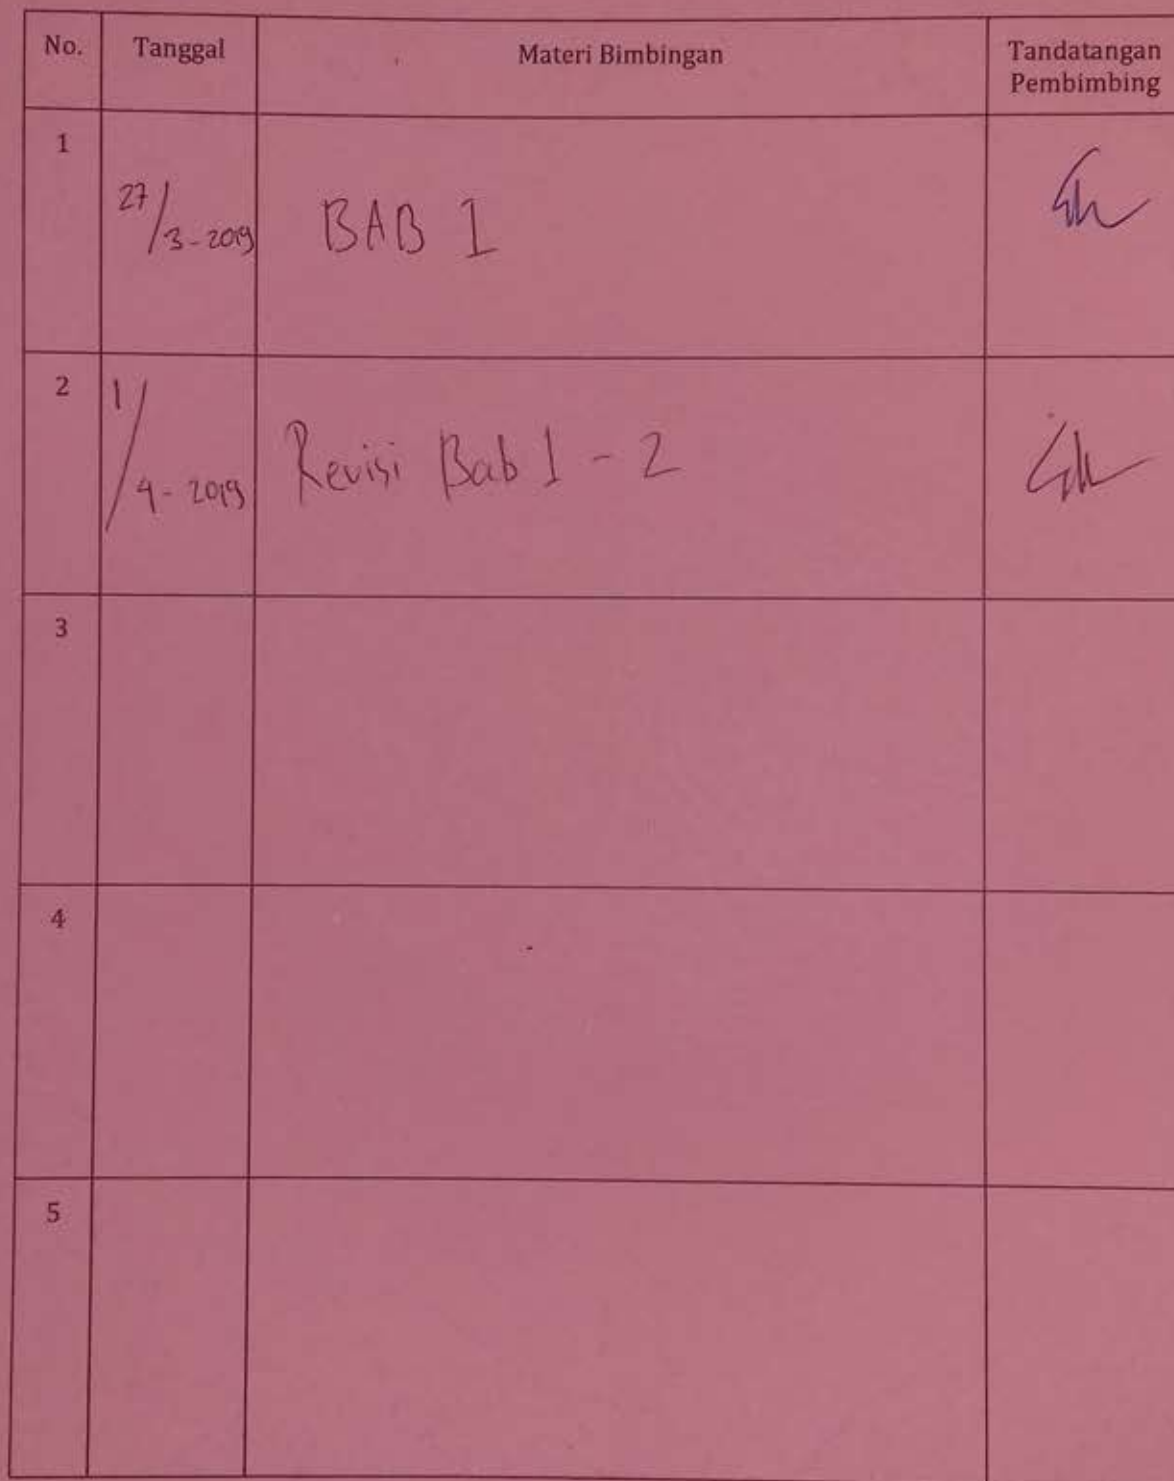 No. Tanggal Materi Bimbingan Tandatangan
Pembimbing
1
27/3-2019 BAB I
2
1/4-2019 Revisi Bab 1 - 2
3
4
5